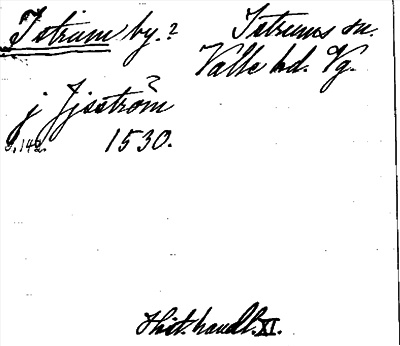 Istrum by.? Istrums sn.
Valle hd. Vg.
j Jjsström ?
s. 142. 1530.
Hist. handl. XI.